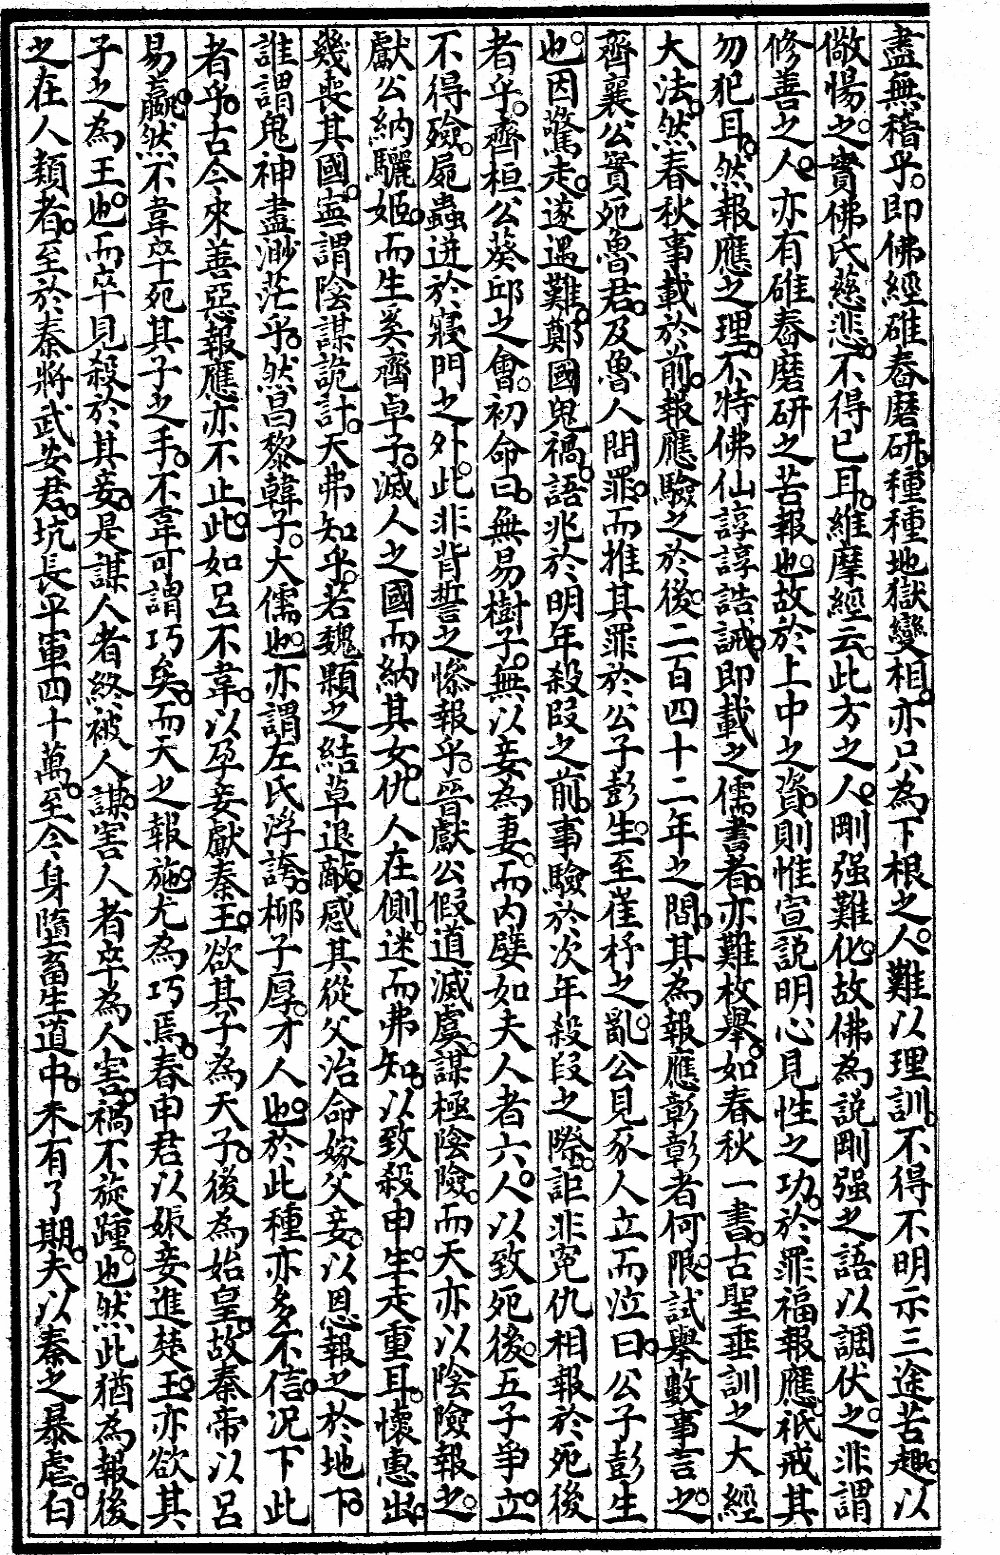 盡無稽乎。即佛經碓舂磨研。種種地獄變相。亦只為下根之人。難以理訓。不得不明示三途苦趣。以
儆惕之。實佛氏慈悲。不得已耳。維摩經云。此方之人。剛强難化。故佛為說剛强之語以調伏之。非謂
修善之人。亦有碓舂磨研之苦報也。故於上中之資。則惟宣說明心見性之功。於罪福報應。祇戒其
勿犯耳。然報應之理。不特佛仙諄諄誥誡。即載之儒書者。亦難枚舉。如春秋一書。古聖垂訓之大經
大法。然春秋事載於前。報應驗之於後。二百四十二年之間。其為報應彰彰者何限。試舉數事言之。
齊襄公實死魯君。及魯人問罪。而推其罪於公子彭生。至崔杼之亂。公見豕人立而泣曰。公子彭生
也。因驚走。遂遇難。鄭國鬼禍。語兆於明年殺段之前。事驗於次年殺段之際。詎非冤仇相報於死後
者乎。齊桓公葵邱之會。初命曰。無易樹子。無以妾為妻。而內嬖如夫人者六人。以致死後。五子爭立。
不得殮。屍蟲迸於寢門之外。此非背誓之慘報乎。晉獻公假道滅虞。謀極陰險。而天亦以陰險報之。
獻公納驪姬。而生奚齊卓子。滅人之國而納其女。仇人在側。迷而弗知。以致殺申生。走重耳。懷惠出。
幾喪其國。寧謂陰謀詭計。天弗知乎。若魏顆之結草退敵。感其從父治命嫁父妾。以恩報之於地下。
誰謂鬼神盡渺茫乎。然昌黎韓子。大儒也。亦謂左氏浮誇。柳子厚。才人也。於此種亦多不信。况下此
者乎。古今來善惡報應。亦不止此。如呂不韋。以孕妾獻秦王。欲其子為天子。後為始皇。故秦帝以呂
易嬴。然不韋卒死其子之手。不韋可謂巧矣。而天之報施。尤為巧焉。春申君以娠妾進楚王。亦欲其
子之為王也。而卒見殺於其妾。是謀人者終被人謀。害人者卒為人害。禍不旋踵也。然此猶為報後
之在人類者。至於秦將武安君。坑長平軍四十萬。至今身墮畜生道中。未有了期。夫以秦之暴虐。白